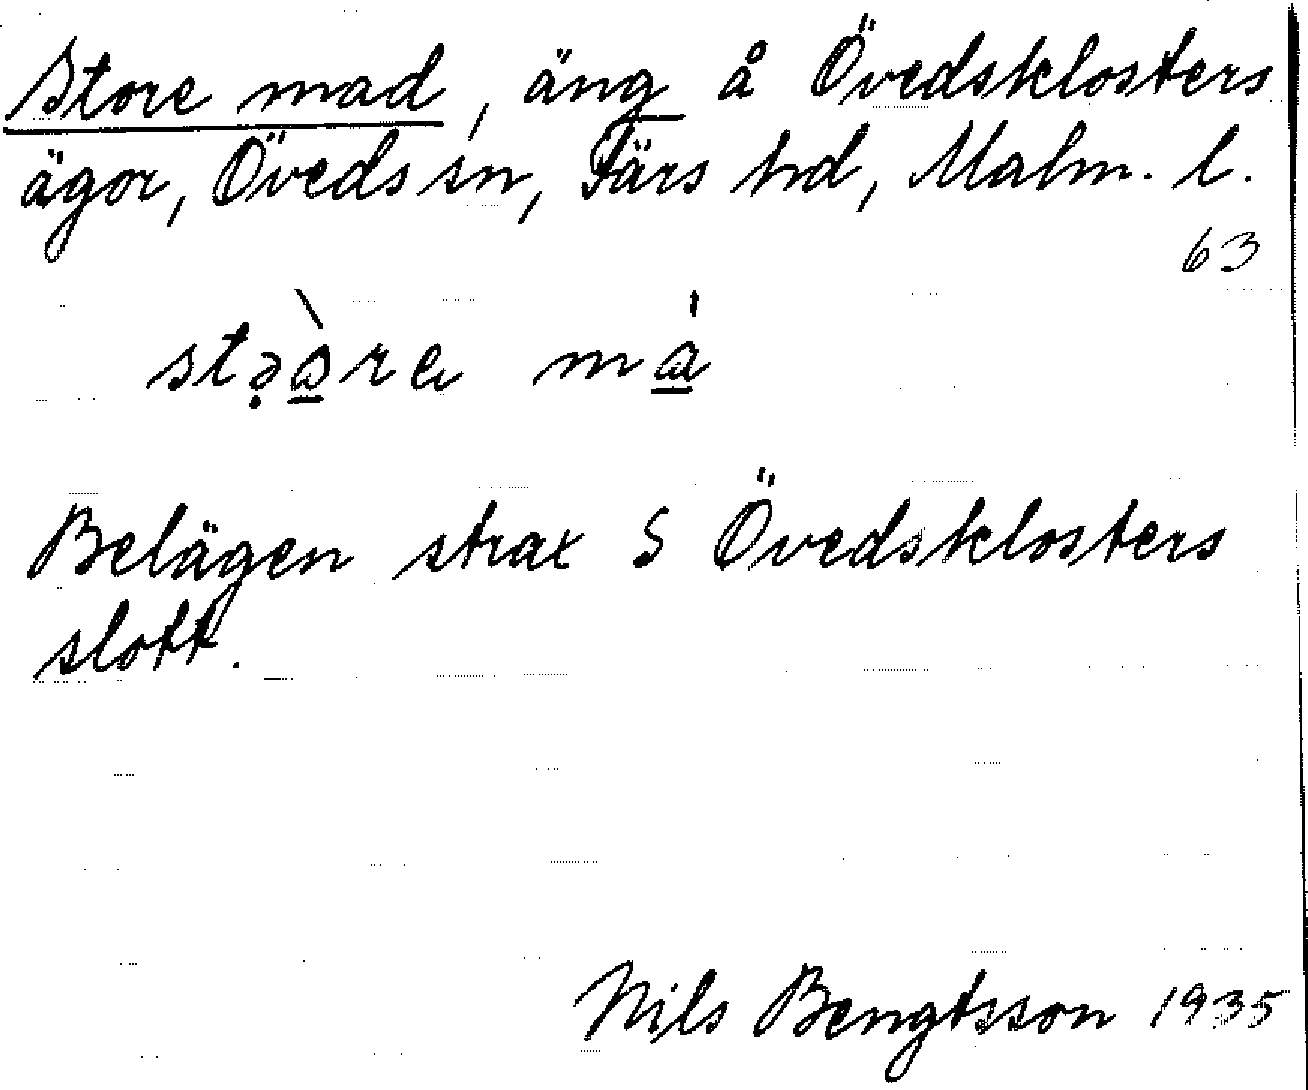 Store mad, äng å Övedsklosters
ägor, Öveds sn, Färs hd, Malm. l.
63
Belägen strax S Övedsklosters
slott.
Nils Bengtsson 1935